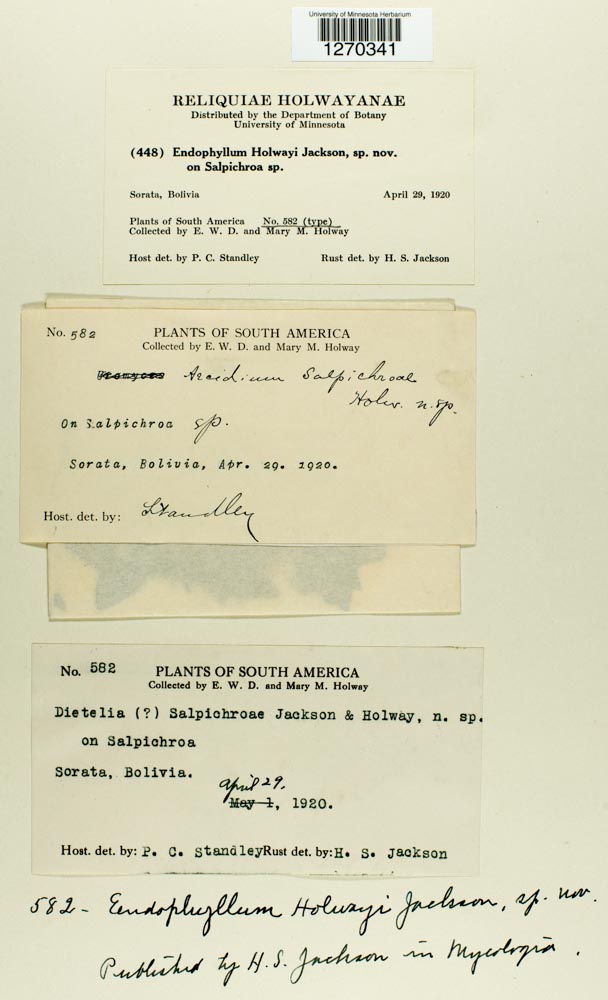 University of Minnesota Herbarium
1270341
RELIQUIAE HOLWAYANAE
Distributed by the Department of Botany
University of Minnesota
(448) Endophyllum Holwayi Jackson, sp. nov.
on Salpichroa sp.
Sorata, Bolivia April 29, 1920
Plants of South America No. 582 (type)
Collected by E. W. D. and Mary M. Holway
Host det. by P. C. Standley Rust det. by H. S. Jackson
No. 582 PLANTS OF SOUTH AMERICA
Collected by E. W. D. and Mary M. Holway
Aecidium Salpichroae
Holw. n. sp.
On Salpichroa sp.
Sorata, Bolivia, Apr. 29. 1920.
Host. det. by: Standley
No. 582 PLANTS OF SOUTH AMERICA
Collected by E. W. D. and Mary M. Holway
Dietelia (?) Salpichroae Jackson & Holway, n. sp.
on Salpichroa
Sorata, Bolivia.
April 29.
May 1, 1920.
Host. det. by: P. C. Standley Rust det. by: H. S. Jackson
582 - Eendophyllum Holwayi Jackson, sp. nov.
Published by H. S. Jackson in Mycologia.